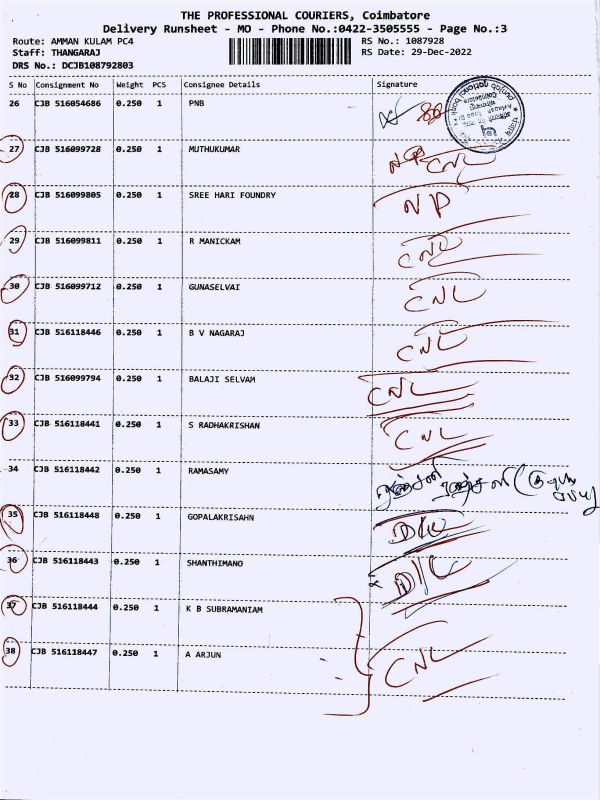 THE PROFESSIONAL COURIERS, Coimbatore
Delivery Runsheet - MO - Phone No.:0422-3505555 - Page No.:3
Route: AMMAN KULAM PC4 RS No.: 1087928
Staff: THANGARAJ RS Date: 29-Dec-2022
DRS No.: DCJB108792803
S No Consignment No Weight PCS Consignee Details Signature
26 CJB 516054686 0.250 1 PNB
27 CJB 516099728 0.250 1 MUTHUKUMAR CNL
28 CJB 516099805 0.250 1 SREE HARI FOUNDRY NP
29 CJB 516099811 0.250 1 R MANICKAM CNL
30 CJB 516099712 0.250 1 GUNASELVAI CNL
31 CJB 516118446 0.250 1 B V NAGARAJ CNL
32 CJB 516099794 0.250 1 BALAJI SELVAM CNL
33 CJB 516118441 0.250 1 S RADHAKRISHAN CNL
34 CJB 516118442 0.250 1 RAMASAMY
35 CJB 516118448 0.250 1 GOPALAKRISAHN D/L
36 CJB 516118443 0.250 1 SHANTHIMANO D/L
37 CJB 516118444 0.250 1 K B SUBRAMANIAM
38 CJB 516118447 0.250 1 A ARJUN CNL